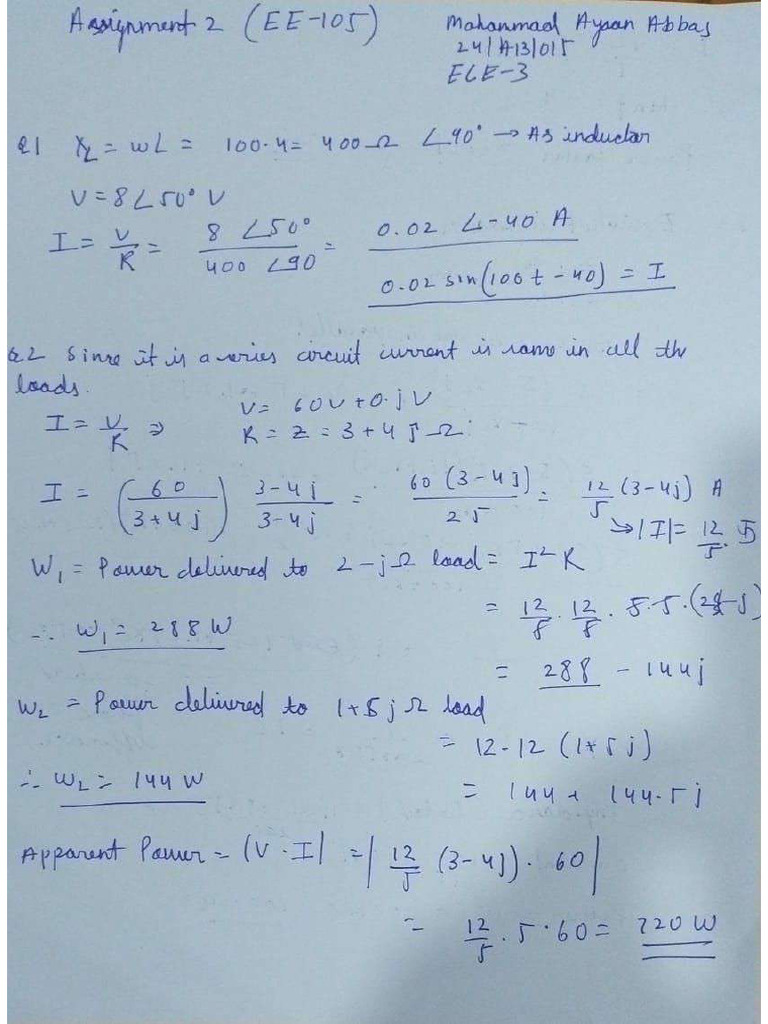 Assignment 2 (EE-105)
Mohammad Ayaan Abbas
24/A13/015
ECE-3
Q1 XL = wL = 100·4 = 400Ω ∠90° → As inductor
V = 8∠50° V
I = V/R = 8∠50° / 400∠90 = 0.02 ∠-40 A
0.02 sin(100t - 40) = I
Q2 Since it is a series circuit current is same in all the
loads.
I = V/R ⇒ V = 60V + 0·jV
R = Z = 3+4jΩ
I = (60/(3+4j)) (3-4j)/(3-4j) = 60(3-4j)/25 = 12/5 (3-4j) A
→ |I| = 12/5 · 5
W1 = Power delivered to 2-jΩ load = I²R
= 12/5 · 12/5 · 5·5·(2-j)
∴ W1 = 288W
= 288 - 144j
W2 = Power delivered to 1+5jΩ load
= 12·12 (1+5j)
∴ W2 = 144W
= 144 + 144·5j
Apparent Power = |V·I| = |12/5 (3-4j) · 60|
= 12/5 · 5·60 = 720W